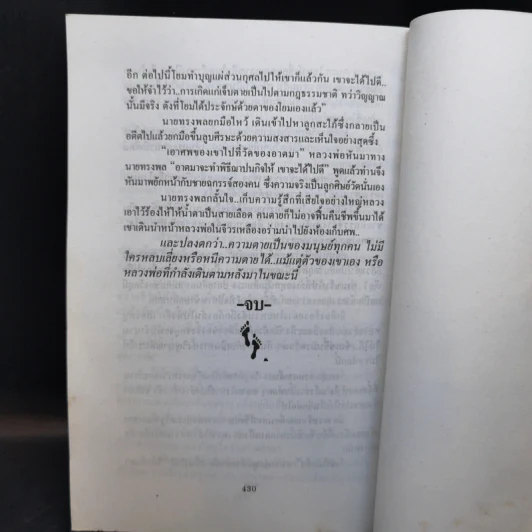 อีก ต่อไปนี้โยมทำบุญแผ่ส่วนกุศลไปให้เขาก็แล้วกัน เขาจะได้ไปดี..
ขอให้จำไว้ว่า..การเกิดแก่เจ็บตายเป็นไปตามกฎธรรมชาติ ทว่าวิญญาณ
นั้นมีจริง ดังที่โยมได้ประจักษ์ด้วยตาของโยมเองแล้ว"
นายทรงพลยกมือไหว้ เดินเข้าไปหาลูกสะใภ้ซึ่งกลายเป็น
อดีตไปแล้วยกมือขึ้นลูบศีรษะด้วยความสงสารและเห็นใจอย่างสุดซึ้ง
"เอาศพของเขาไปที่วัดของอาตมา" หลวงพ่อหันมาทาง
นายทรงพล "อาตมาจะทำพิธีฌาปนกิจให้ เขาจะได้ไปดี" พูดแล้วท่านจึง
หันมาพยักหน้ากับชายฉกรรจ์สองคน ซึ่งความจริงเป็นลูกศิษย์วัดนั่นเอง
นายทรงพลกลั้นใจ..เก็บความรู้สึกที่เสียใจอย่างใหญ่หลวง
เอาไว้ร้องไห้ให้น้ำตาเป็นสายเลือด คนตายก็ไม่อาจฟื้นคืนชีพขึ้นมาได้
เขาเดินนำหน้าหลวงพ่อในจีวรเหลืองอร่ามนำไปยังห้องเก็บศพ..
และปลงตกว่า..ความตายเป็นของมนุษย์ทุกคน ไม่มี
ใครหลบเลี่ยงหรือหนีความตายได้..แม้แต่ตัวของเขาเอง หรือ
หลวงพ่อที่กำลังเดินตามหลังมาในขณะนี้
-จบ-
430